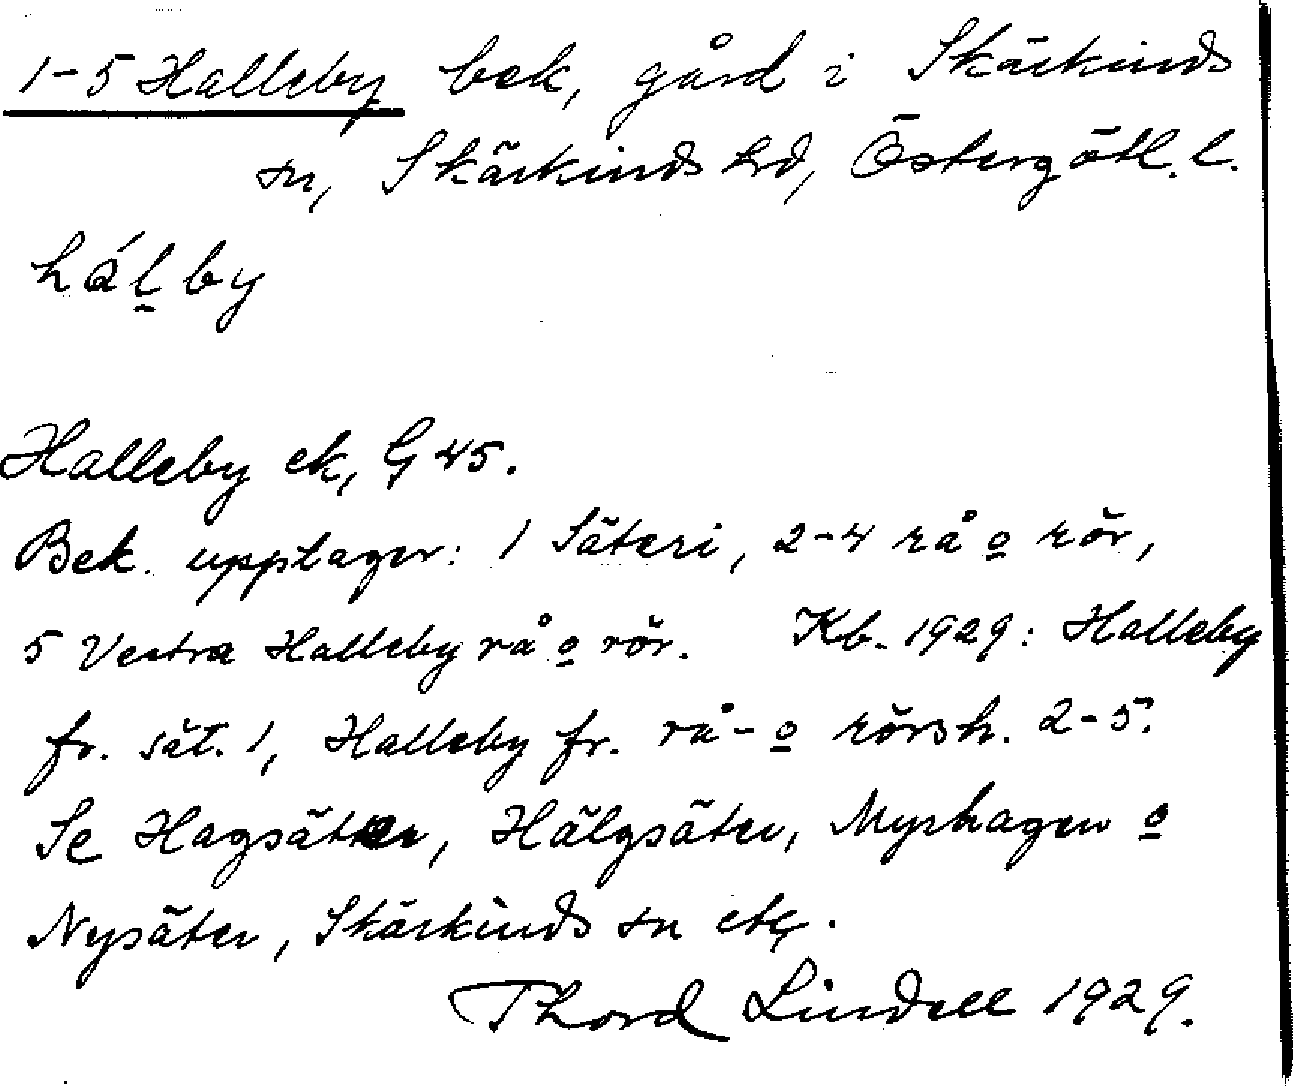 1-5 Halleby bek, gård i Skärkinds
sn, Skärkinds hd, Östergötl. l.
hálby
Halleby ek, G 45.
Bek. upptager: 1 Säteri, 2-4 rå o rör,
5 Vestra Halleby rå o rör. Kb. 1929: Halleby
fr. sät. 1, Halleby fr. rå- o rörsh. 2-5.
Se Hagsäter, Hälgsäter, Myrhagen o
Nysäter, Skärkinds sn etc.
Thord Lindell 1929.